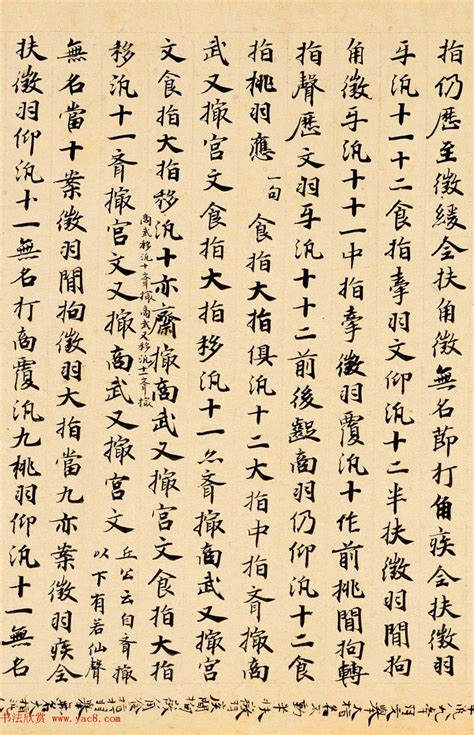 指仍歷至徵緩全扶角徵無名節打角疾全扶徵羽
汎十一十二食指牽羽文仰汎十二半扶徵羽間拘
角徵汎十十一中指牽徵羽覆汎十作前挑間拘轉
指聲歷文羽汎十十二前後商羽仍仰汎十二食
指挑羽應 一句 食指大指俱汎十二大指中指齊撮商
武又撮宮文食指大指移汎十一亦齊撮商武又撮宮
文食指大指移汎十亦齊撮商武又撮宮文食指大指
商武移汎十齊撮商武又移汎十二齊撮
移汎十一齊撮宮文又撮商武又撮宮文 丘公云自齊撮
以下有若仙聲
無名當十案徵羽間拘徵羽大指當九亦案徵羽疾全
扶徵羽仰汎十一無名打商覆汎九挑羽仰汎十一無名
书法欣赏
www.yac8.com